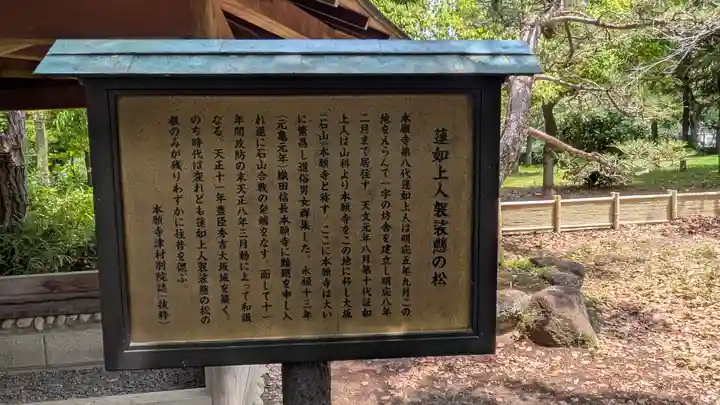 蓮如上人袈裟懸の松
本願寺第八代蓮如上人は明応五年九月この
地をえらんで一宇の坊舎を建立し明応八年
二月まで居住す。天文元年八月第十代証如
上人は山科より本願寺をこの地に移し大坂
(石山)本願寺と称す ここに本願寺は大い
に繁昌し道俗男女群集した。永禄十三年
(元亀元年)織田信長本願寺に難題を申し入
れ遂に石山合戦の発端をなす。而して十一
年間攻防の末天正八年三月勅によって和議
なる 天正十一年豊臣秀吉大坂城を築く。
のち時代は変れども蓮如上人袈裟懸の松の
根のみが残りわずかに往昔を偲ぶ
本願寺津村別院誌(抜粋)